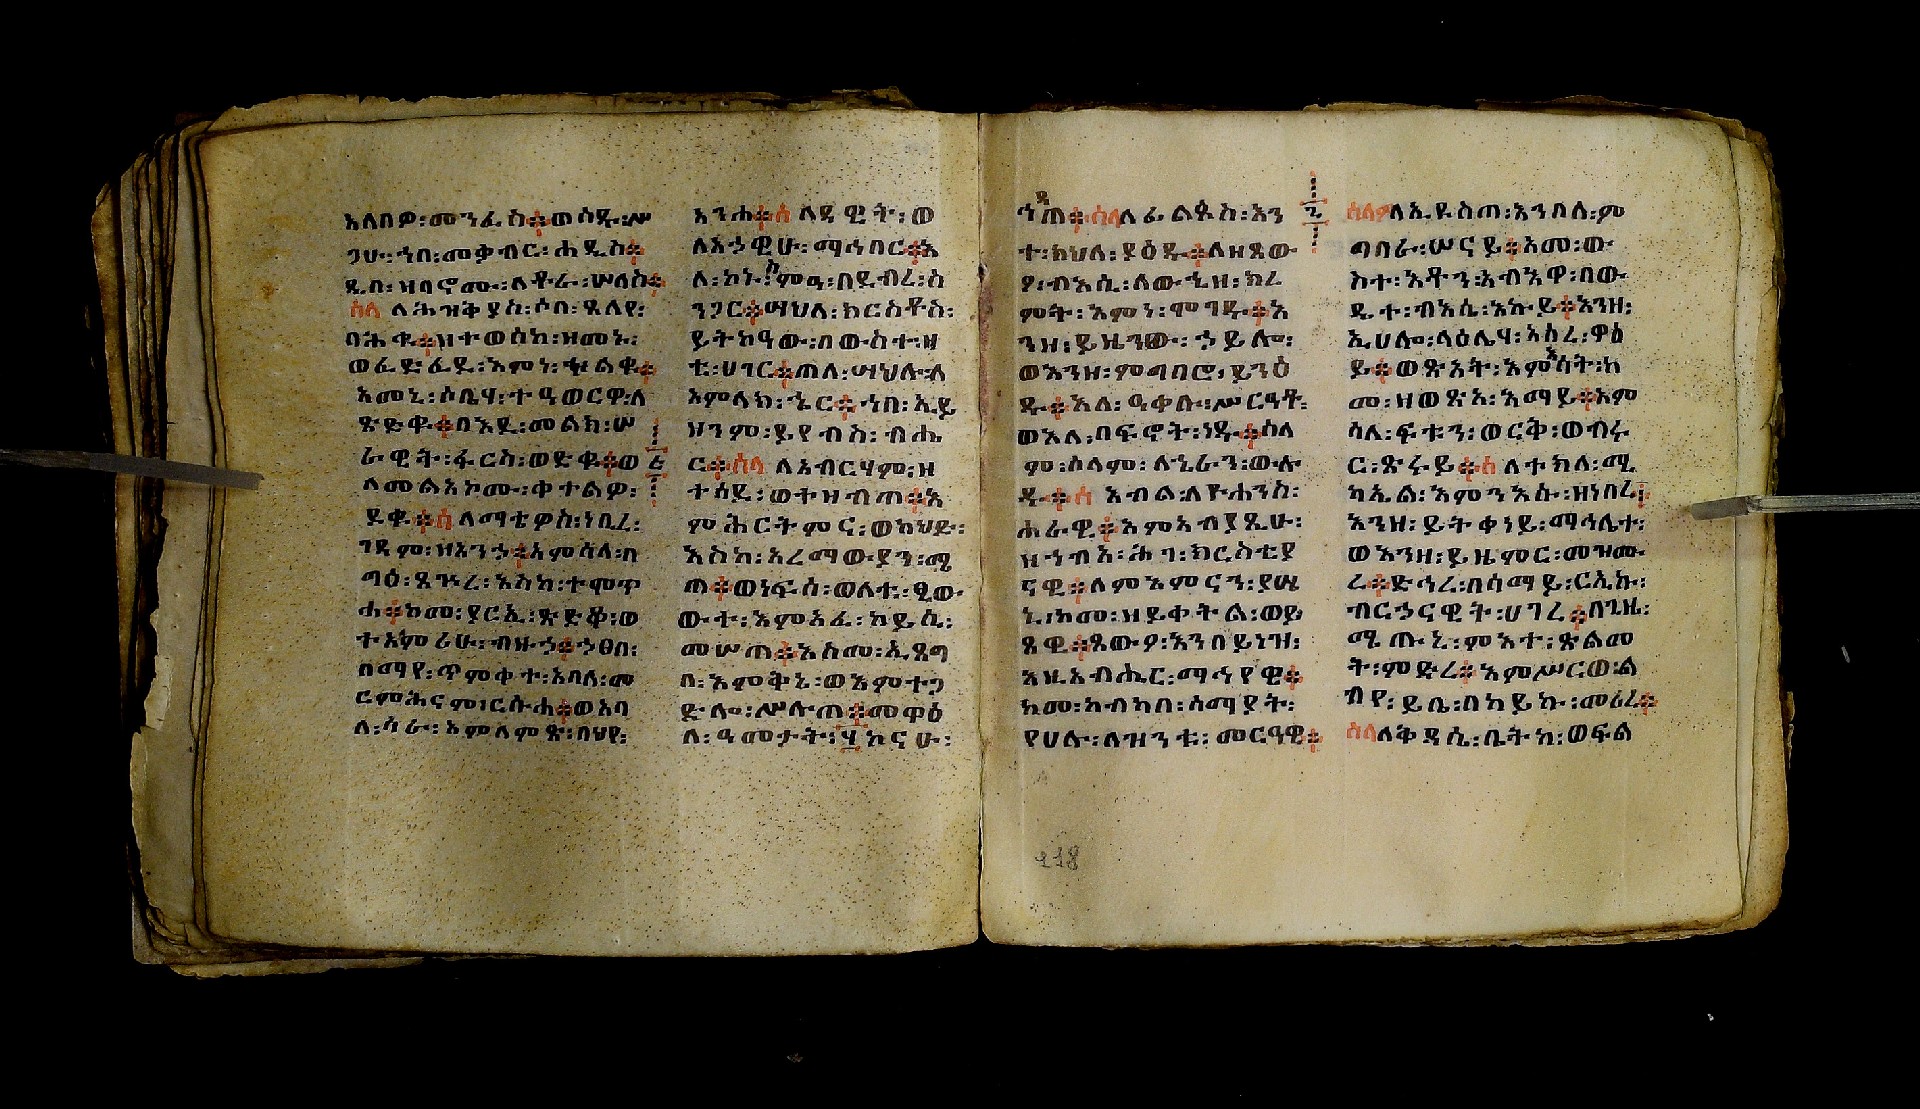 አለበዎ፡መንፈስ፨ወሰዱ፡ሥ
ጋሁ፡ኀበ፡መቃብር፡ሐዲስ፨
ዲበ፡ዝባኖሙ፡ለቶራ፡ሠለስ፨
ሰላ ለሕዝቅያስ፡ሶበ፡ጸለየ፡
ባሕቱ፨ዘተወሰከ፡ዝመኑ፡
ወፈድፈደ፡እምነ፡ኍልቁ፨
አመኒ፡ሶቤሃ፡ተዓወርዋ፡ለ
ጽድቁ፨በአደ፡መልክ፡ሠ
ራዊት፡ፋርስ፡ወድቁ፨ወ
ለመልአኮሙ፡ቀተልዎ፡
ደቁ፨ሰ ለማቴዎስ፡ነበረ፡
ገዳም፡ዘአንኃ፨አምሰለ፡በ
ግዕ፡ጸጕረ፡እስከ፡ተሞጥ
ሐ፨ከመ፡ያርኢ፡ጽድቅ፡ወ
ተአምሪሁ፡ብዙኃ፨ኃፀበ፡
በማየ፡ጥምቀተ፡አባለ፡መ
ርምሕናም፡ርሱሐ፨ወአባ
ለ፡ሳራ፡እምለምጽ፡በህየ፡
አንሐ፨ሰ ለዳዊት፡ወ
ለአኃዊሁ፡ማኅበር፨እ
ለ፡ኮኑ፡ምዓ፡በደብረ፡ስ
ንጋር፨ማህለ፡ክርስቶስ፡
ይትከዓው፡በውስተ፡ዛ
ቲ፡ሀገር፨ጠለ፡ሣህሉ፡ለ
አምላክ፡ኄር፨ኀበ፡ኢይ
ህንም፡ይየብስ፡ብሔ
ር፨ሰላ ለአብርሃም፡ዘ
ተሰደ፡ወተዘብጠ፨እ
ምሕርትምና፡ወክህደ፡
እስከ፡አረማውያን፡ሜ
ጠ፨ወነፍስ፡ወለቱ፡ፂው
ውተ፡እምአፈ፡ከይሲ፡
መሠጠ፨እስመ፡ኢጸግ
በ፡እምቅኔ፡ወእምተጋ
ድሎ፡ሥሉጠ፨መዋዕ
ለ፡ዓመታት፡፶ ኮናሁ፡
ኀዳጠ፨ሰላ ለፊልጶስ፡እን
ተ፡ክህለ፡ያዕዱ፨ለዘጼው
ዖ፡ብእሲ፡ለውኂዘ፡ክረ
ምት፡እምነ፡ሞገዱ፨እ
ንዘ፡ይዜንው፡ኃይሎ፡
ወእንዘ፡ምግባሮ፡ይንዕ
ዱ፨እለ፡ዓቀቡ፡ሥርዓት፡
ወእለ፡በፍኖት፡ነዱ፨ሰላ
ም፡ሰላም፡ለኄራን፡ወሉ
ዱ፨ሰ እብል፡ለዮሐንስ፡
ሐራዊ፨እምአብ፲ጺሁ፡
ዘኀብእ፡ሕገ፡ክርስቲያ
ናዊ፨ለምእምናን፡ያሤ
ኒ፡ከመ፡ዘይቀትል፡ወይ
ጼዊ፨ጼውዖ፡አንበይነዝ፡
እዚአብሔር፡ማኅየዊ፨
ከመ፡ከብካበ፡ሰማያት፡
የሀሉ፡ለዝንቱ፡መርዓዊ፨
ሰላም ለኢዮስጠ፡እንበለ፡ም
ግባራ፡ሠናይ፨አመ፡ው
ስተ፡እቶን፡አብአዋ፡በው
ዴተ፡ብእሲ፡እኩይ፨እንዘ፡
ኢሀሎ፡ላዕሌሃ፡አሰረ፡ዋዕ
ይ፨ወጽአት፡እምእሳት፡ከ
መ፡ዘወጽአ፡እማይ፨አም
ሳለ፡ፍቱን፡ወርቅ፡ወብሩ
ር፡ጽሩይ፨ሰ ለተክለ፡ሚ
ካኤል፡እምንእሱ፡ዘነበረ፨
እንዘ፡ይትቀነይ፡ማኅሌተ፡
ወእንዘ፡ይዜምር፡መዝሙ
ረ፨ድኅረ፡በሰማይ፡ርኢኩ፡
ብርኃናዊት፡ሀገረ፨በጊዜ፡
ሜጡኒ፡ምእተ፡ጽልመ
ት፡ምድረ፨እምሥርወ፡ል
ብየ፡ይቤ፡በካይኩ፡መሪረ፨
ሰላ ለቅዳሴ፡ቤትከ፡ወፍል
118